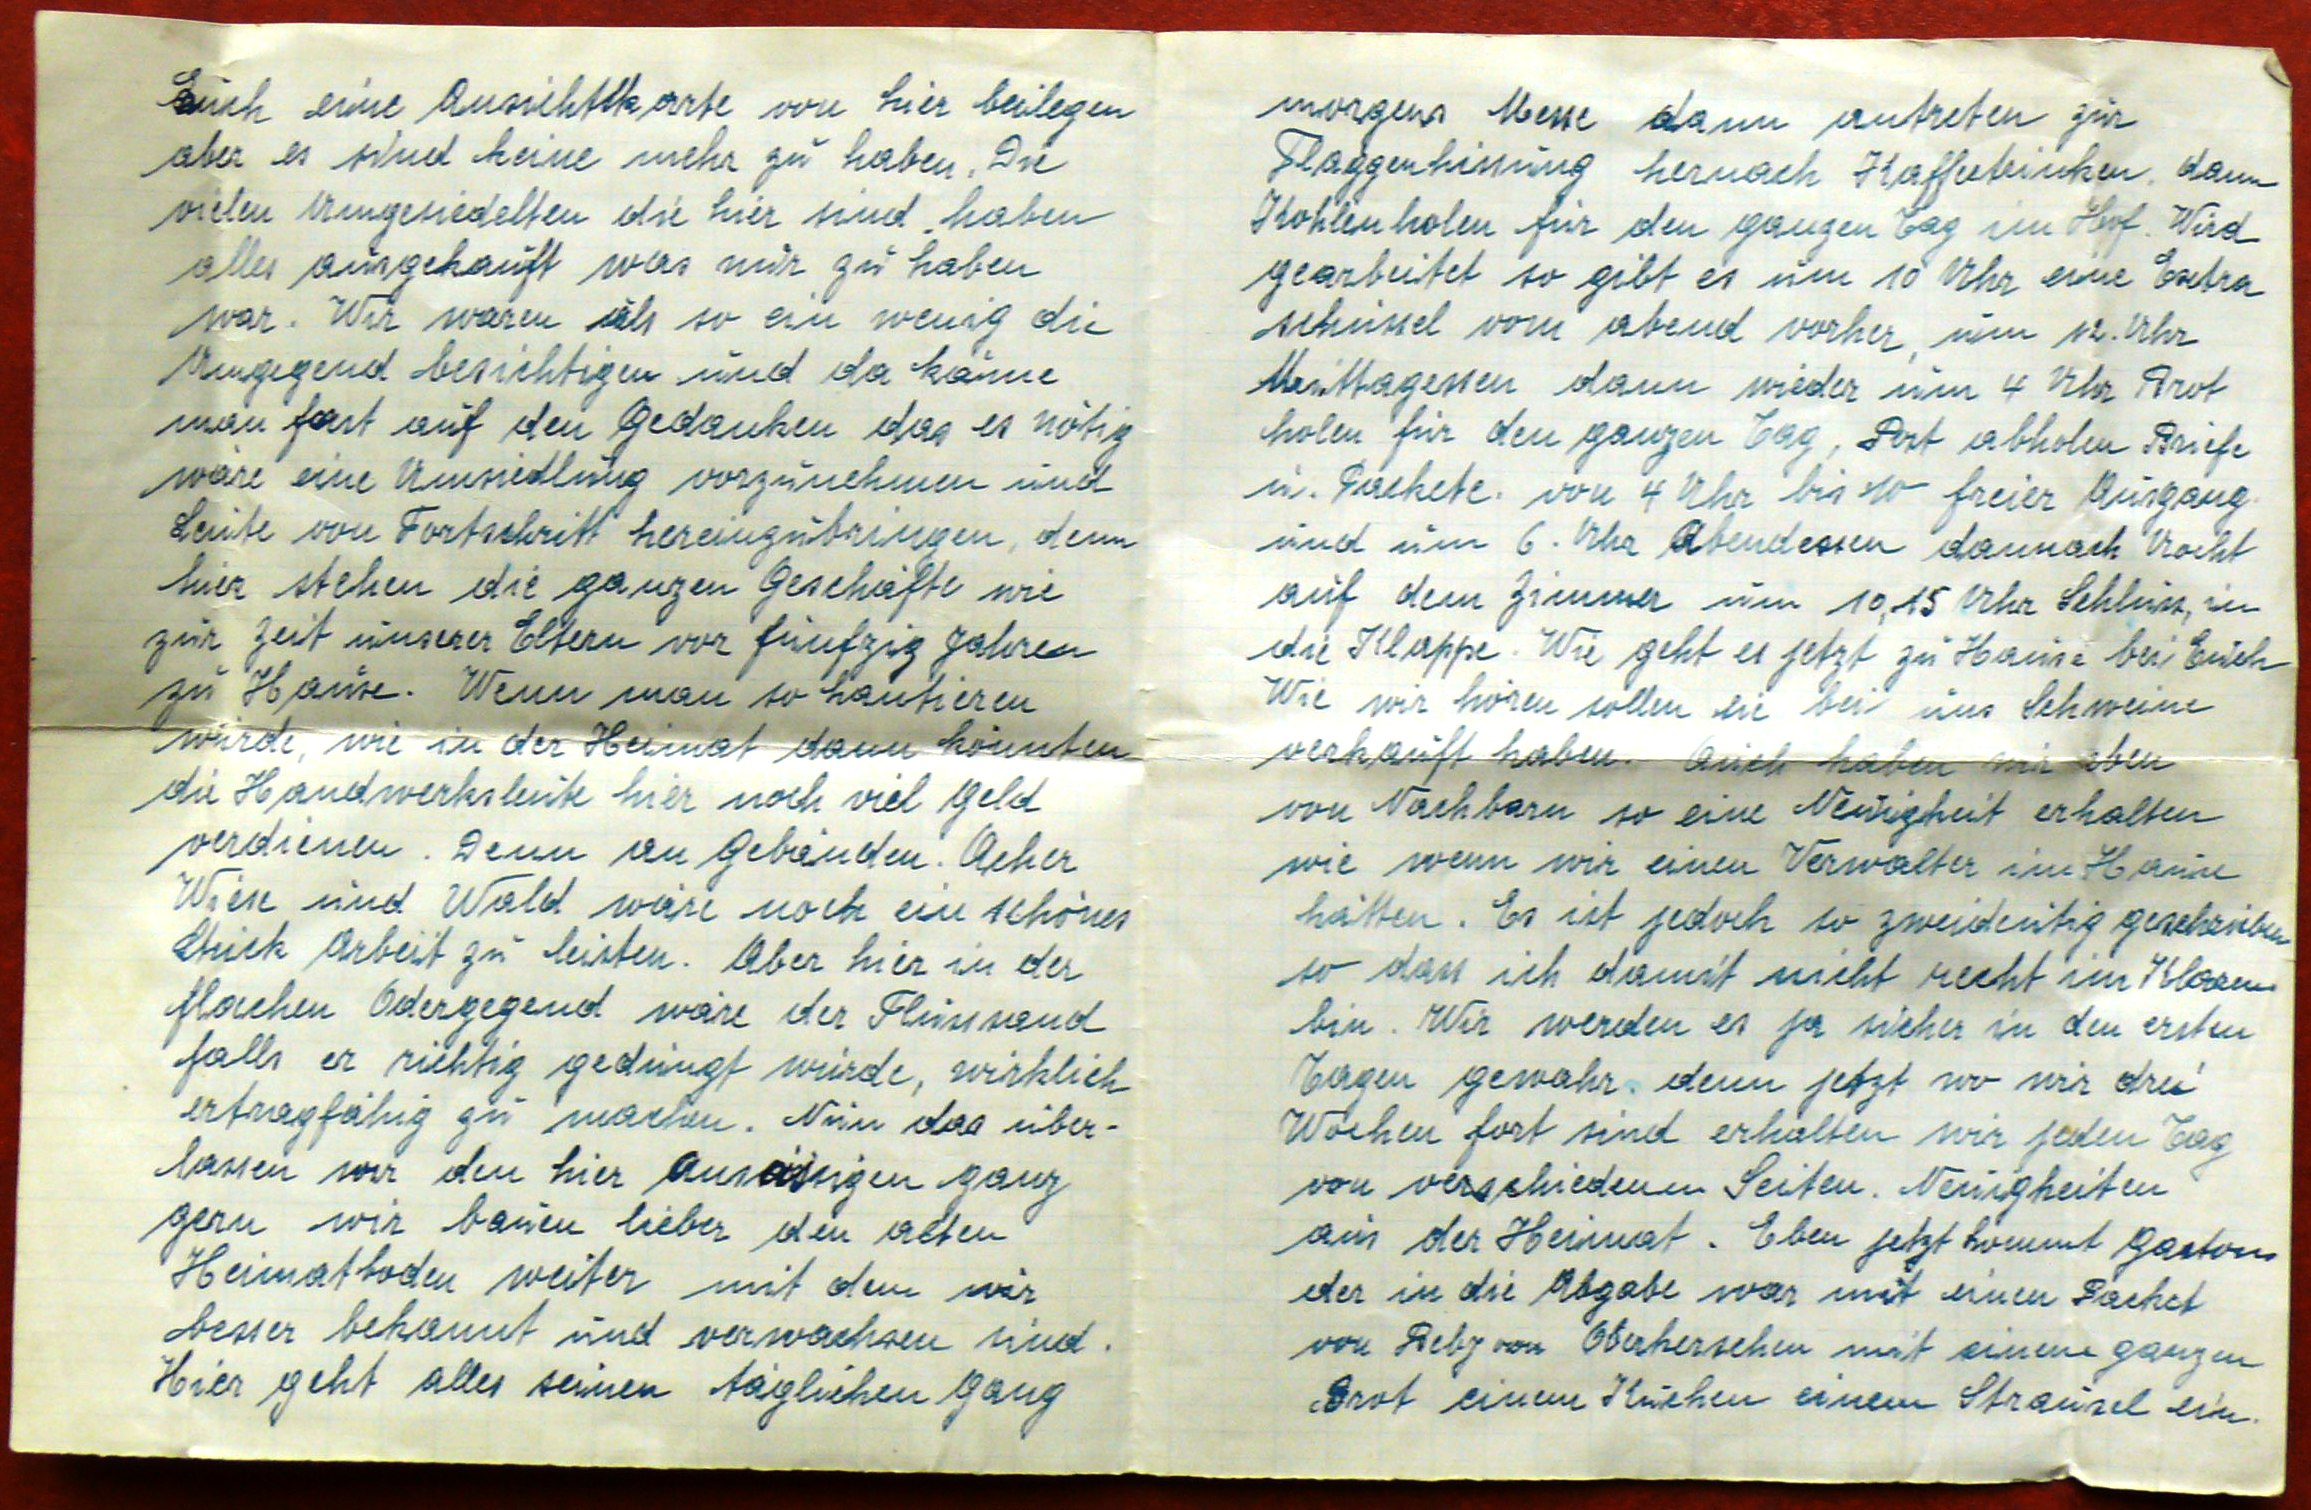 Euch eine Ansichtskarte von hier beilegen
aber es sind keine mehr zu haben. Die
vielen Umgesiedelten die hier sind haben
alles ausgekauft was nur zu haben
war. Wir waren als so ein wenig die
Umgegend besichtigen und da käme
man fast auf den Gedanken das es nötig
wäre eine Umsiedlung vorzunehmen und
Leute von Fortschritt hereinzubringen, denn
hier stehen die ganzen Geschäfte wie
zur Zeit unserer Eltern vor fünfzig Jahren
zu Hause. Wenn man so hantieren
würde, wie in der Heimat dann könnten
die Handwerksleute hier noch viel Geld
verdienen. Denn an Gebäuden. Acker
Wiese und Wald wäre noch ein schönes
Stück Arbeit zu leisten. Aber hier in der
flachen Odergegend wäre der Flusssand
falls er richtig gedüngt würde, wirklich
ertragfähig zu machen. Nun das über-
lassen wir den hier Ansässigen ganz
gern wir bauen lieber den alten
Heimatboden weiter mit dem wir
besser bekannt und verwachsen sind.
Hier geht alles seinen täglichen Gang
morgens Messe dann antreten zur
Flaggenhissung hernach Kaffeetrinken. dann
Kohlenholen für den ganzen Tag im Hof. Wird
gearbeitet so gibt es um 10 Uhr eine Extra
schüssel vom abend vorher, um 12. Uhr
Mittagessen dann wieder um 4 Uhr Brot
holen für den ganzen Tag, Post abholen Briefe
u. Packete. von 4 Uhr bis 10 freier Ausgang.
und um 6. Uhr Abendessen dannach
auf dem Zimmer um 10,15 Uhr Schluss, in
die Klappe. Wie geht es jetzt zu Hause bei Euch
Wie wir hören sollen sie bei uns Schweine
verkauft haben. Auch haben wir eben
von Nachbarn so eine Neuigkeit erhalten
wie wenn wir einen Verwalter im Hause
hätten. Es ist jedoch so zweideutig geschrieben
so dass ich damit nicht recht im Klaren
bin. Wir werden es ja sicher in den ersten
Tagen gewahr. denn jetzt wo wir drei
Wochen fort sind erhalten wir jeden Tag
von verschiedenen Seiten. Neuigkeiten
aus der Heimat. Eben jetzt kommt Gaston
der in die Abgabe war mit einen Packet
von von mit einem ganzen
Brot einem Kuchen einem Straussel ein.